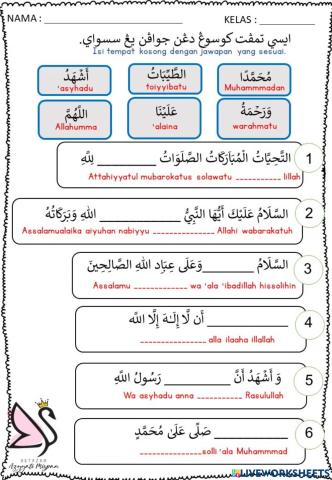 NAMA : ____________ KELAS : ____________
ايسي تمڤت كوسوڠ دڠن جواڤن يڠ سسواي.
Isi tempat kosong dengan jawapan yang sesuai.
أَشْهَدُ الطَّيِّبَاتُ مُحَمَّدًا
'asyhadu toiyyibatu Muhammmadan
اللَّهُمَّ عَلَيْنَا وَرَحْمَةُ
Allahumma 'alaina warahmatu
التَّحِيَّاتُ الْمُبَارَكَاتُ الصَّلَوَاتُ __________ لِلَّهِ 1
Attahiyyatul mubarokatus solawatu __________ lillah
السَّلَامُ عَلَيْكَ أَيُّهَا النَّبِيُّ __________ اللهِ وَبَرَكَاتُهُ 2
Assalamualaika aiyuhan nabiyyu ____________ Allahi wabarakatuh
السَّلَامُ __________وَعَلَى عِبَادِ اللهِ الصَّالِحِينَ 3
Assalamu ____________ wa 'ala 'ibadillah hissolihin
____________ أَن لَّا إِلَـٰهَ إِلَّا اللَّه 4
______________ alla ilaaha illallah
وَ أَشْهَدُ أَنَّ ____________ رَسُولُ اللَّه 5
Wa asyhadu anna ____________ Rasulullah
____________ صَلِّى عَلَىٰ مُحَمَّدٍ 6
______________solli 'ala Muhammad
LIVEWORKSHEETS